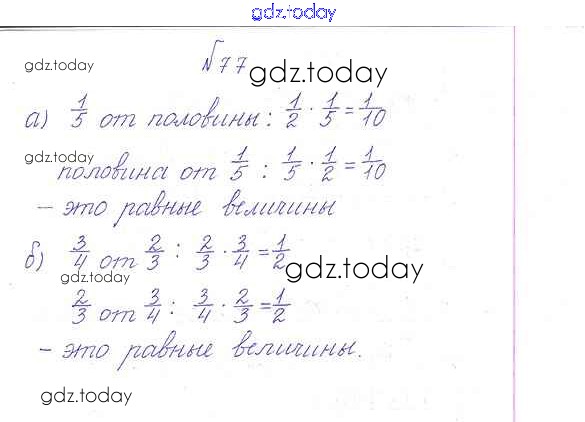 gdz.today
gdz.today
№77
gdz.today
а) 1/5 от половины: 1/2 · 1/5 = 1/10
gdz.today
половина от 1/5 : 1/5 · 1/2 = 1/10
– это равные величины
б) 3/4 от 2/3 : 2/3 · 3/4 = 1/2
gdz.today
gdz.today
2/3 от 3/4 : 3/4 · 2/3 = 1/2
– это равные величины.
gdz.today